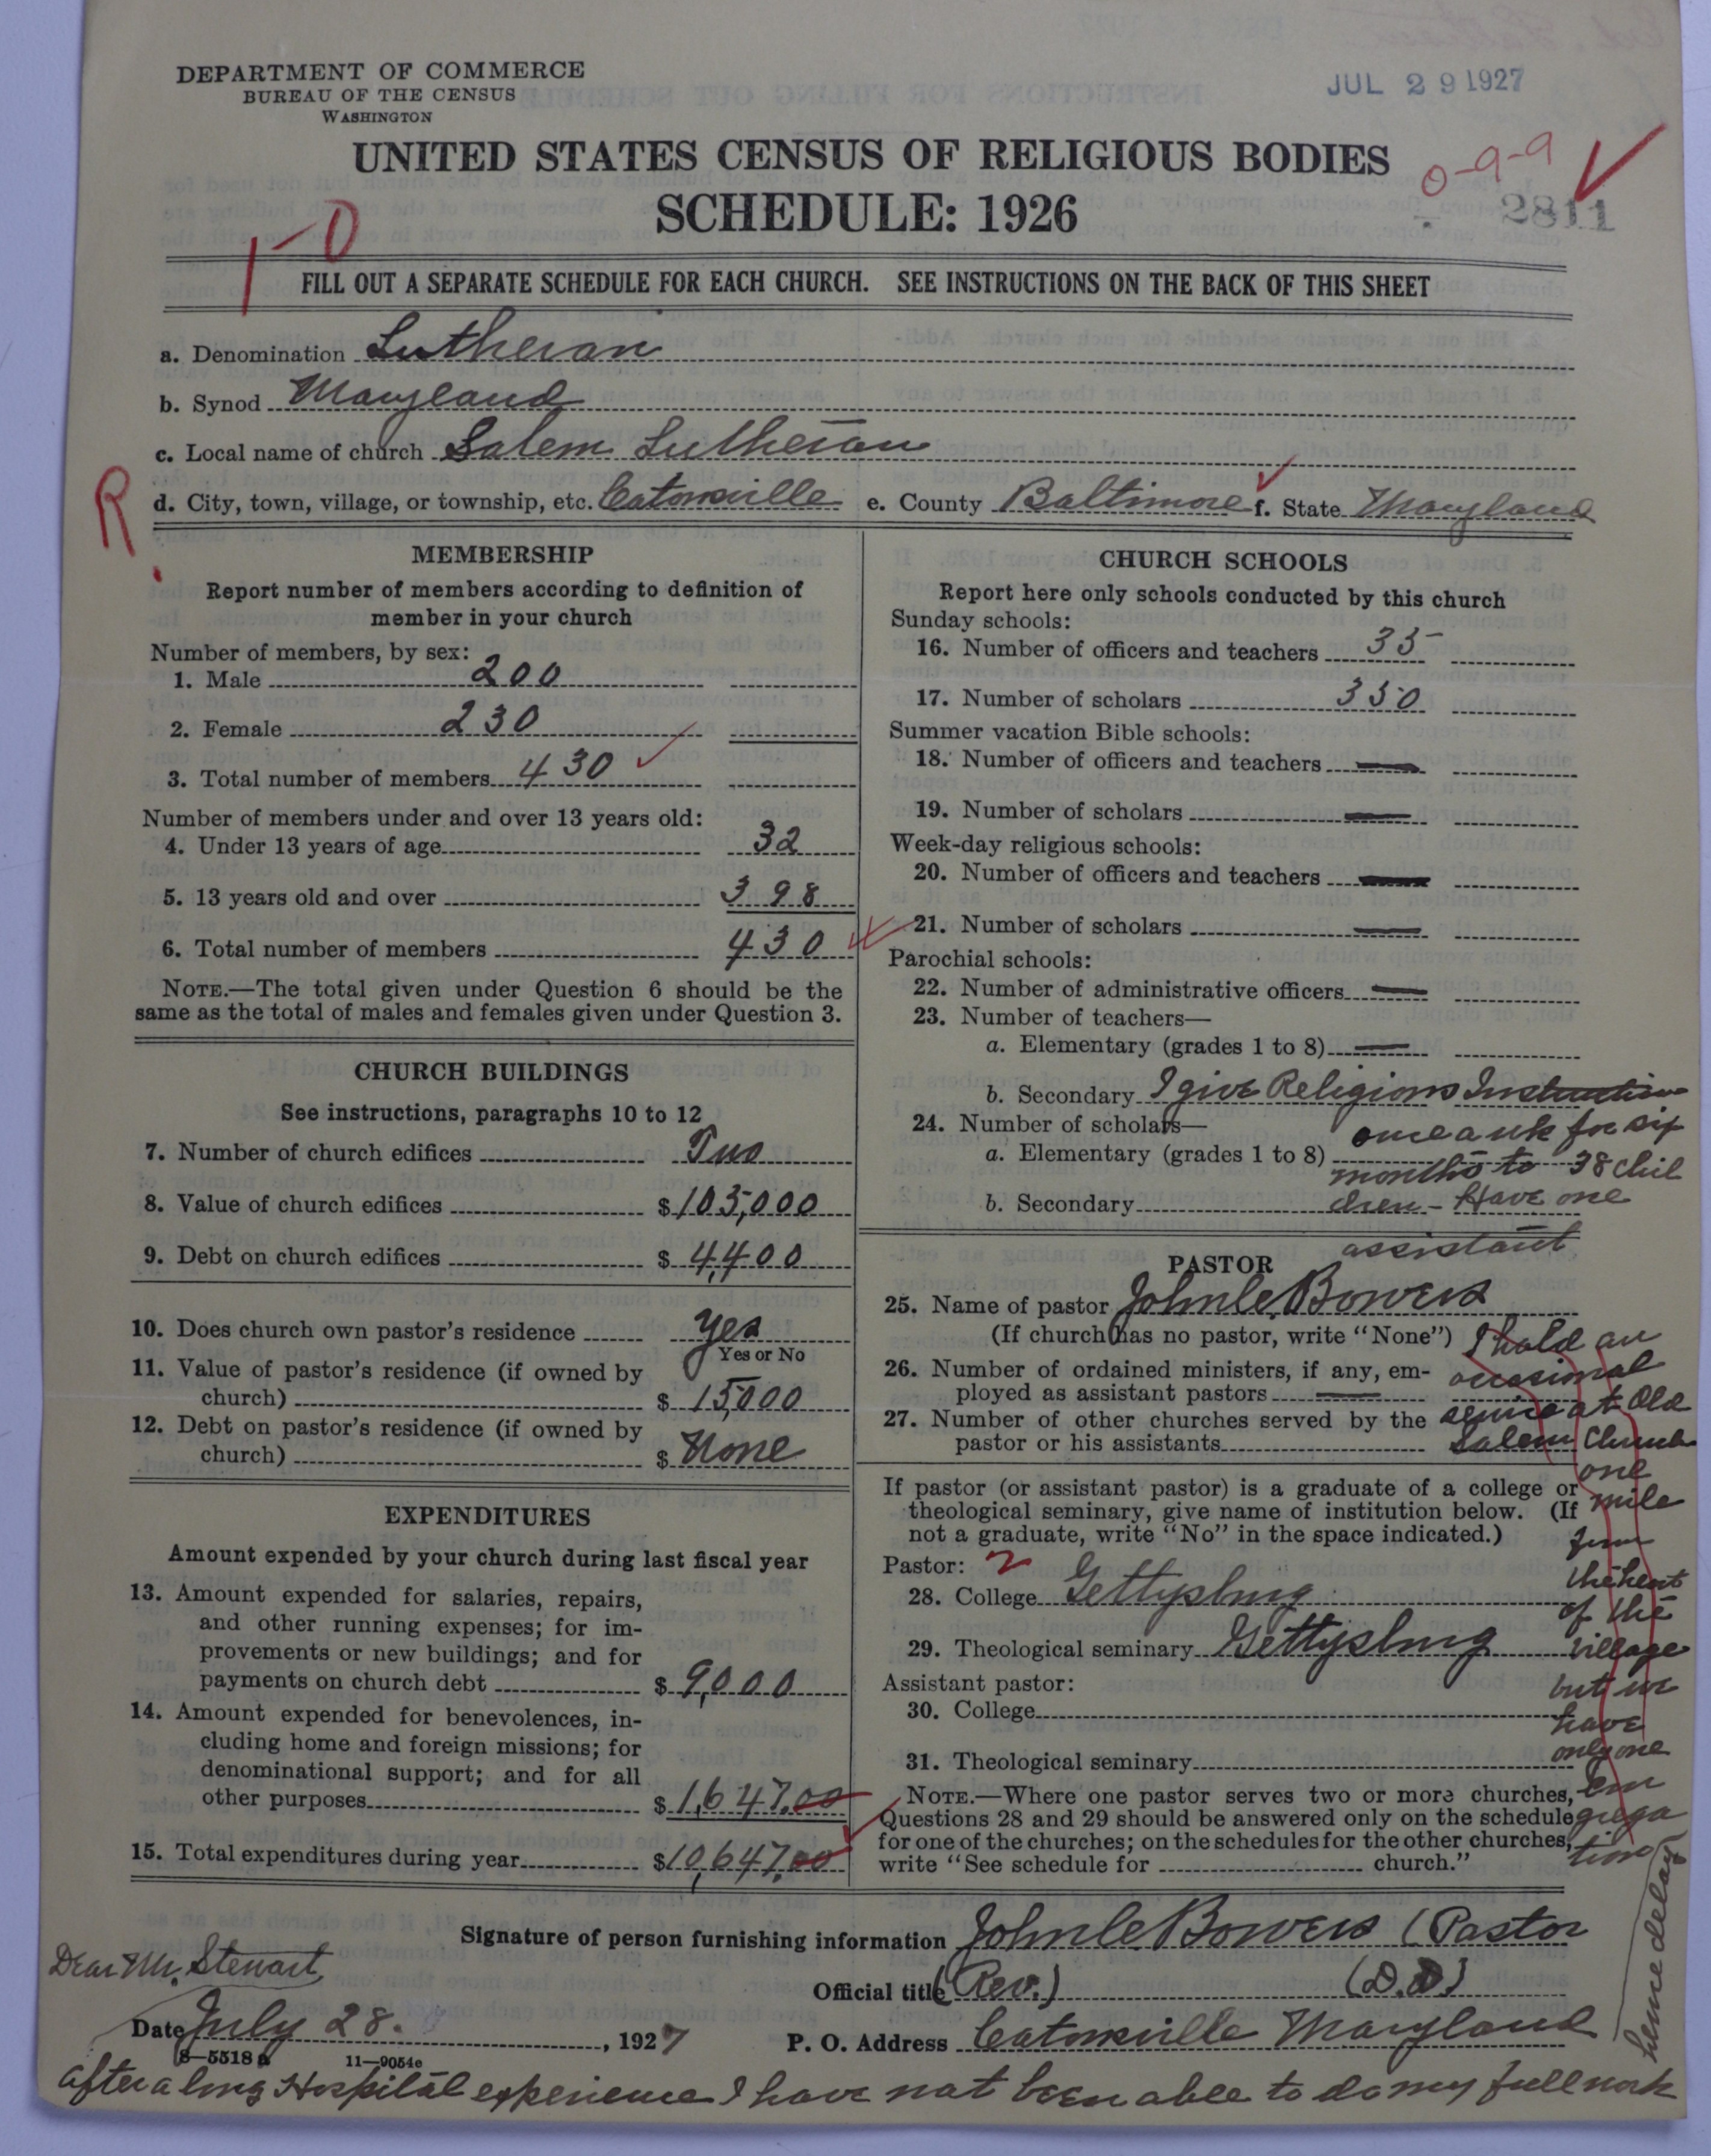 DEPARTMENT OF COMMERCE
BUREAU OF THE CENSUS
WASHINGTON
JUL 29 1927
UNITED STATES CENSUS OF RELIGIOUS BODIES
SCHEDULE: 1926
0-9-9
2811
1-0
FILL OUT A SEPARATE SCHEDULE FOR EACH CHURCH. SEE INSTRUCTIONS ON THE BACK OF THIS SHEET
a. Denomination Lutheran
b. Synod Maryland
c. Local name of church Salem Lutheran
R
d. City, town, village, or township, etc. Catonsville e. County Baltimore f. State Maryland
MEMBERSHIP
Report number of members according to definition of
member in your church
Number of members, by sex:
1. Male 200
2. Female 230
3. Total number of members 430
Number of members under and over 13 years old:
4. Under 13 years of age 32
5. 13 years old and over 398
6. Total number of members 430
NOTE.—The total given under Question 6 should be the
same as the total of males and females given under Question 3.
CHURCH BUILDINGS
See instructions, paragraphs 10 to 12
7. Number of church edifices Two
8. Value of church edifices $ 105,000
9. Debt on church edifices $ 4,400
10. Does church own pastor's residence Yes
Yes or No
11. Value of pastor's residence (if owned by
church) $ 15,000
12. Debt on pastor's residence (if owned by
church) $ None
EXPENDITURES
Amount expended by your church during last fiscal year
13. Amount expended for salaries, repairs,
and other running expenses; for im-
provements or new buildings; and for
payments on church debt $ 9,000
14. Amount expended for benevolences, in-
cluding home and foreign missions; for
denominational support; and for all
other purposes $ 1,647.00
15. Total expenditures during year $ 10,647.00
CHURCH SCHOOLS
Report here only schools conducted by this church
Sunday schools:
16. Number of officers and teachers 35
17. Number of scholars 350
Summer vacation Bible schools:
18. Number of officers and teachers —
19. Number of scholars —
Week-day religious schools:
20. Number of officers and teachers —
21. Number of scholars —
Parochial schools:
22. Number of administrative officers —
23. Number of teachers—
a. Elementary (grades 1 to 8) —
b. Secondary I give Religious Instruction
24. Number of scholars— once a wk for six
a. Elementary (grades 1 to 8) months to 38 chil
b. Secondary dren - Have one
assistant
PASTOR
25. Name of pastor John C. Bowers
(If church has no pastor, write "None") I hold an
26. Number of ordained ministers, if any, em- occasional
ployed as assistant pastors —
27. Number of other churches served by the service at Old
pastor or his assistants Salem Church
one
If pastor (or assistant pastor) is a graduate of a college or
theological seminary, give name of institution below. (If mile
not a graduate, write "No" in the space indicated.)
from
Pastor: 2
the heart
28. College Gettysburg
of the
29. Theological seminary Gettysburg village
Assistant pastor:
but we
30. College
have
only one
31. Theological seminary
NOTE.—Where one pastor serves two or more churches, con
Questions 28 and 29 should be answered only on the schedule grega
for one of the churches; on the schedules for the other churches, tion
write "See schedule for church."
Signature of person furnishing information John C Bowers (Pastor
Official title (Rev.) (D.D.)
Dear Mr. Stewart
Date July 28. , 1927 P. O. Address Catonsville Maryland
8—5518 a 11—9054c
After a long Hospital experience I have not been able to do my full work
hence delay